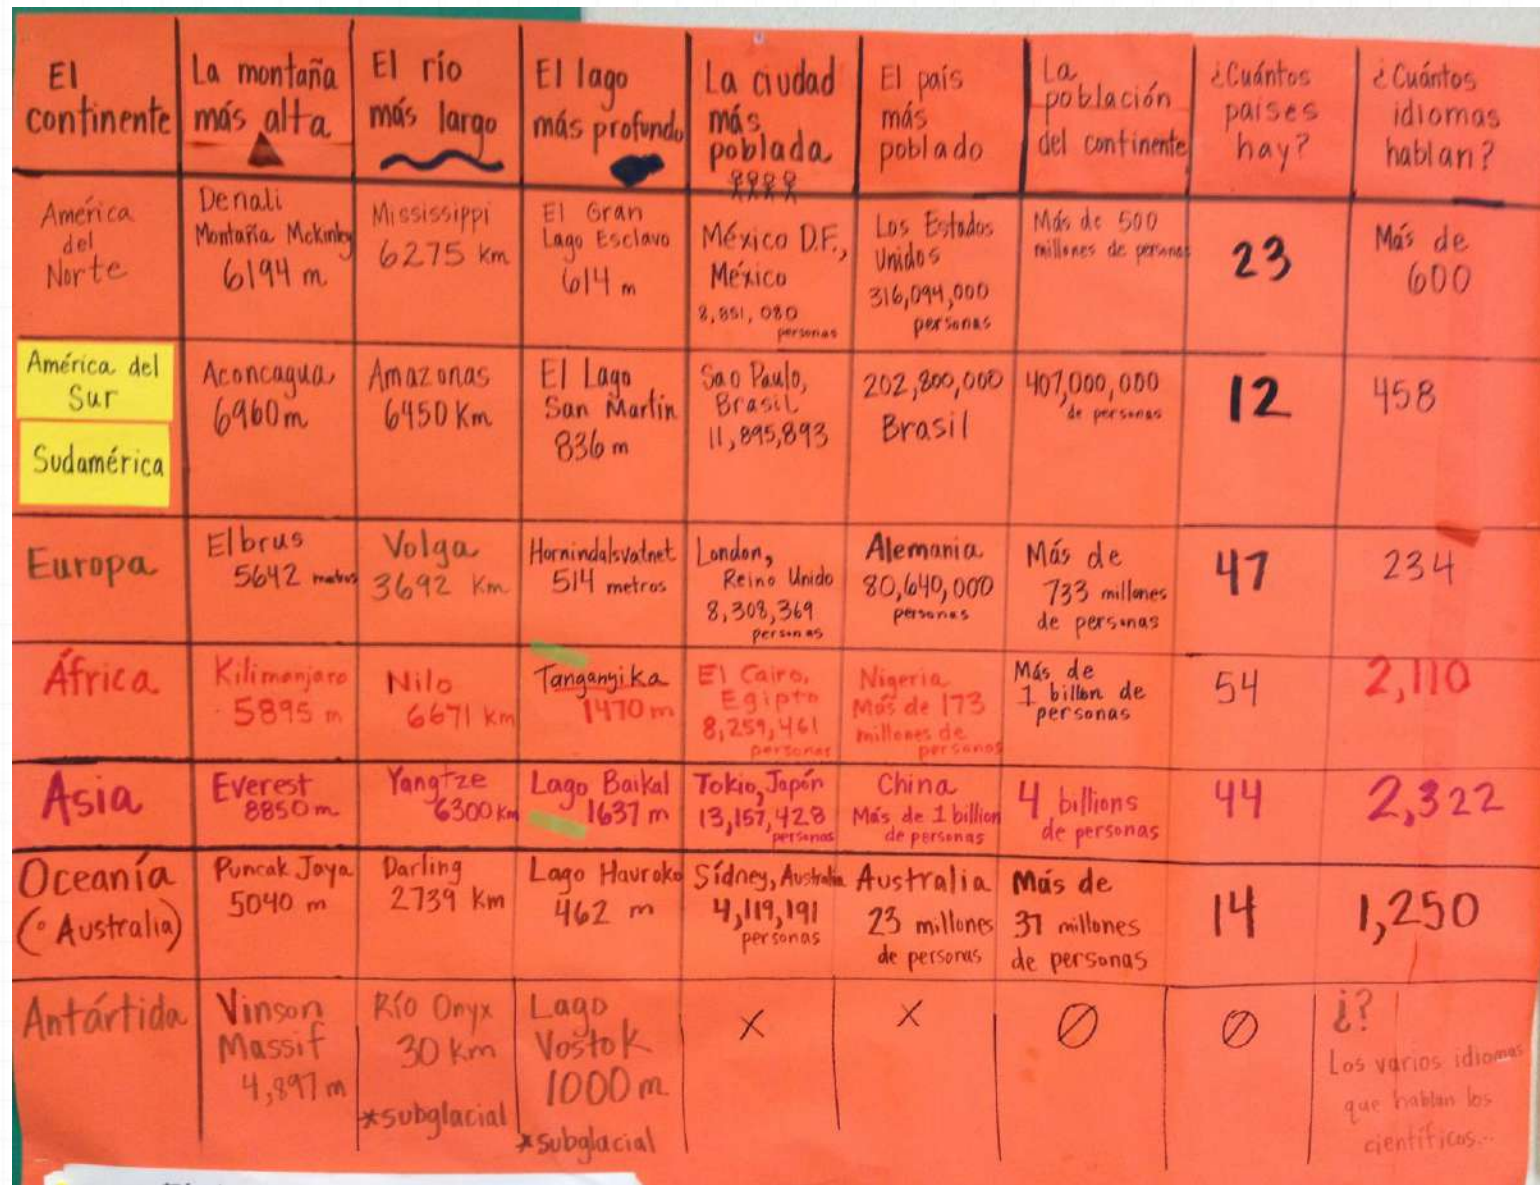 El
continente
La montaña
más alta
El río
más largo
El lago
más profundo
La ciudad
más
poblada
El país
más
poblado
La
población
del continente
¿Cuántos
países
hay?
¿Cuántos
idiomas
hablan?
América
del
Norte
Denali
Montaña Mckinley
6194 m
Mississippi
6275 km
El Gran
Lago Esclavo
614 m
México D.F.,
México
8,851,080
personas
Los Estados
Unidos
316,094,000
personas
Más de 500
millones de personas
23
Más de
600
América del
Sur
Sudamérica
Aconcagua
6960m
Amazonas
6450 Km
El Lago
San Martín
836 m
Sao Paulo,
Brasil
11,895,893
202,800,000
Brasil
407,000,000
de personas
12
458
Europa
Elbrus
5642 metros
Volga
3692 Km
Hornindalsvatnet
514 metros
London,
Reino Unido
8,308,369
personas
Alemania
80,640,000
personas
Más de
733 millones
de personas
47
234
África
Kilimanjaro
5895 m
Nilo
6671 km
Tanganyika
1470 m
El Cairo,
Egipto
8,259,461
personas
Nigeria
Más de 173
millones de
personas
Más de
1 billon de
personas
54
2,110
Asia
Everest
8850 m
Yangtze
6300 Km
Lago Baikal
1637 m
Tokio, Japón
13,157,428
personas
China
Más de 1 billion
de personas
4 billions
de personas
44
2,322
Oceanía
(o Australia)
Puncak Jaya
5040 m
Darling
2739 Km
Lago Hauroko
462 m
Sídney, Australia
4,119,191
personas
Australia
23 millones
de personas
Más de
37 millones
de personas
14
1,250
Antártida
Vinson
Massif
4,897 m
Río Onyx
30 km
*subglacial
Lago
Vostok
1000 m
*subglacial
X
X
Ø
Ø
¿?
Los varios idiomas
que hablan los
científicos...